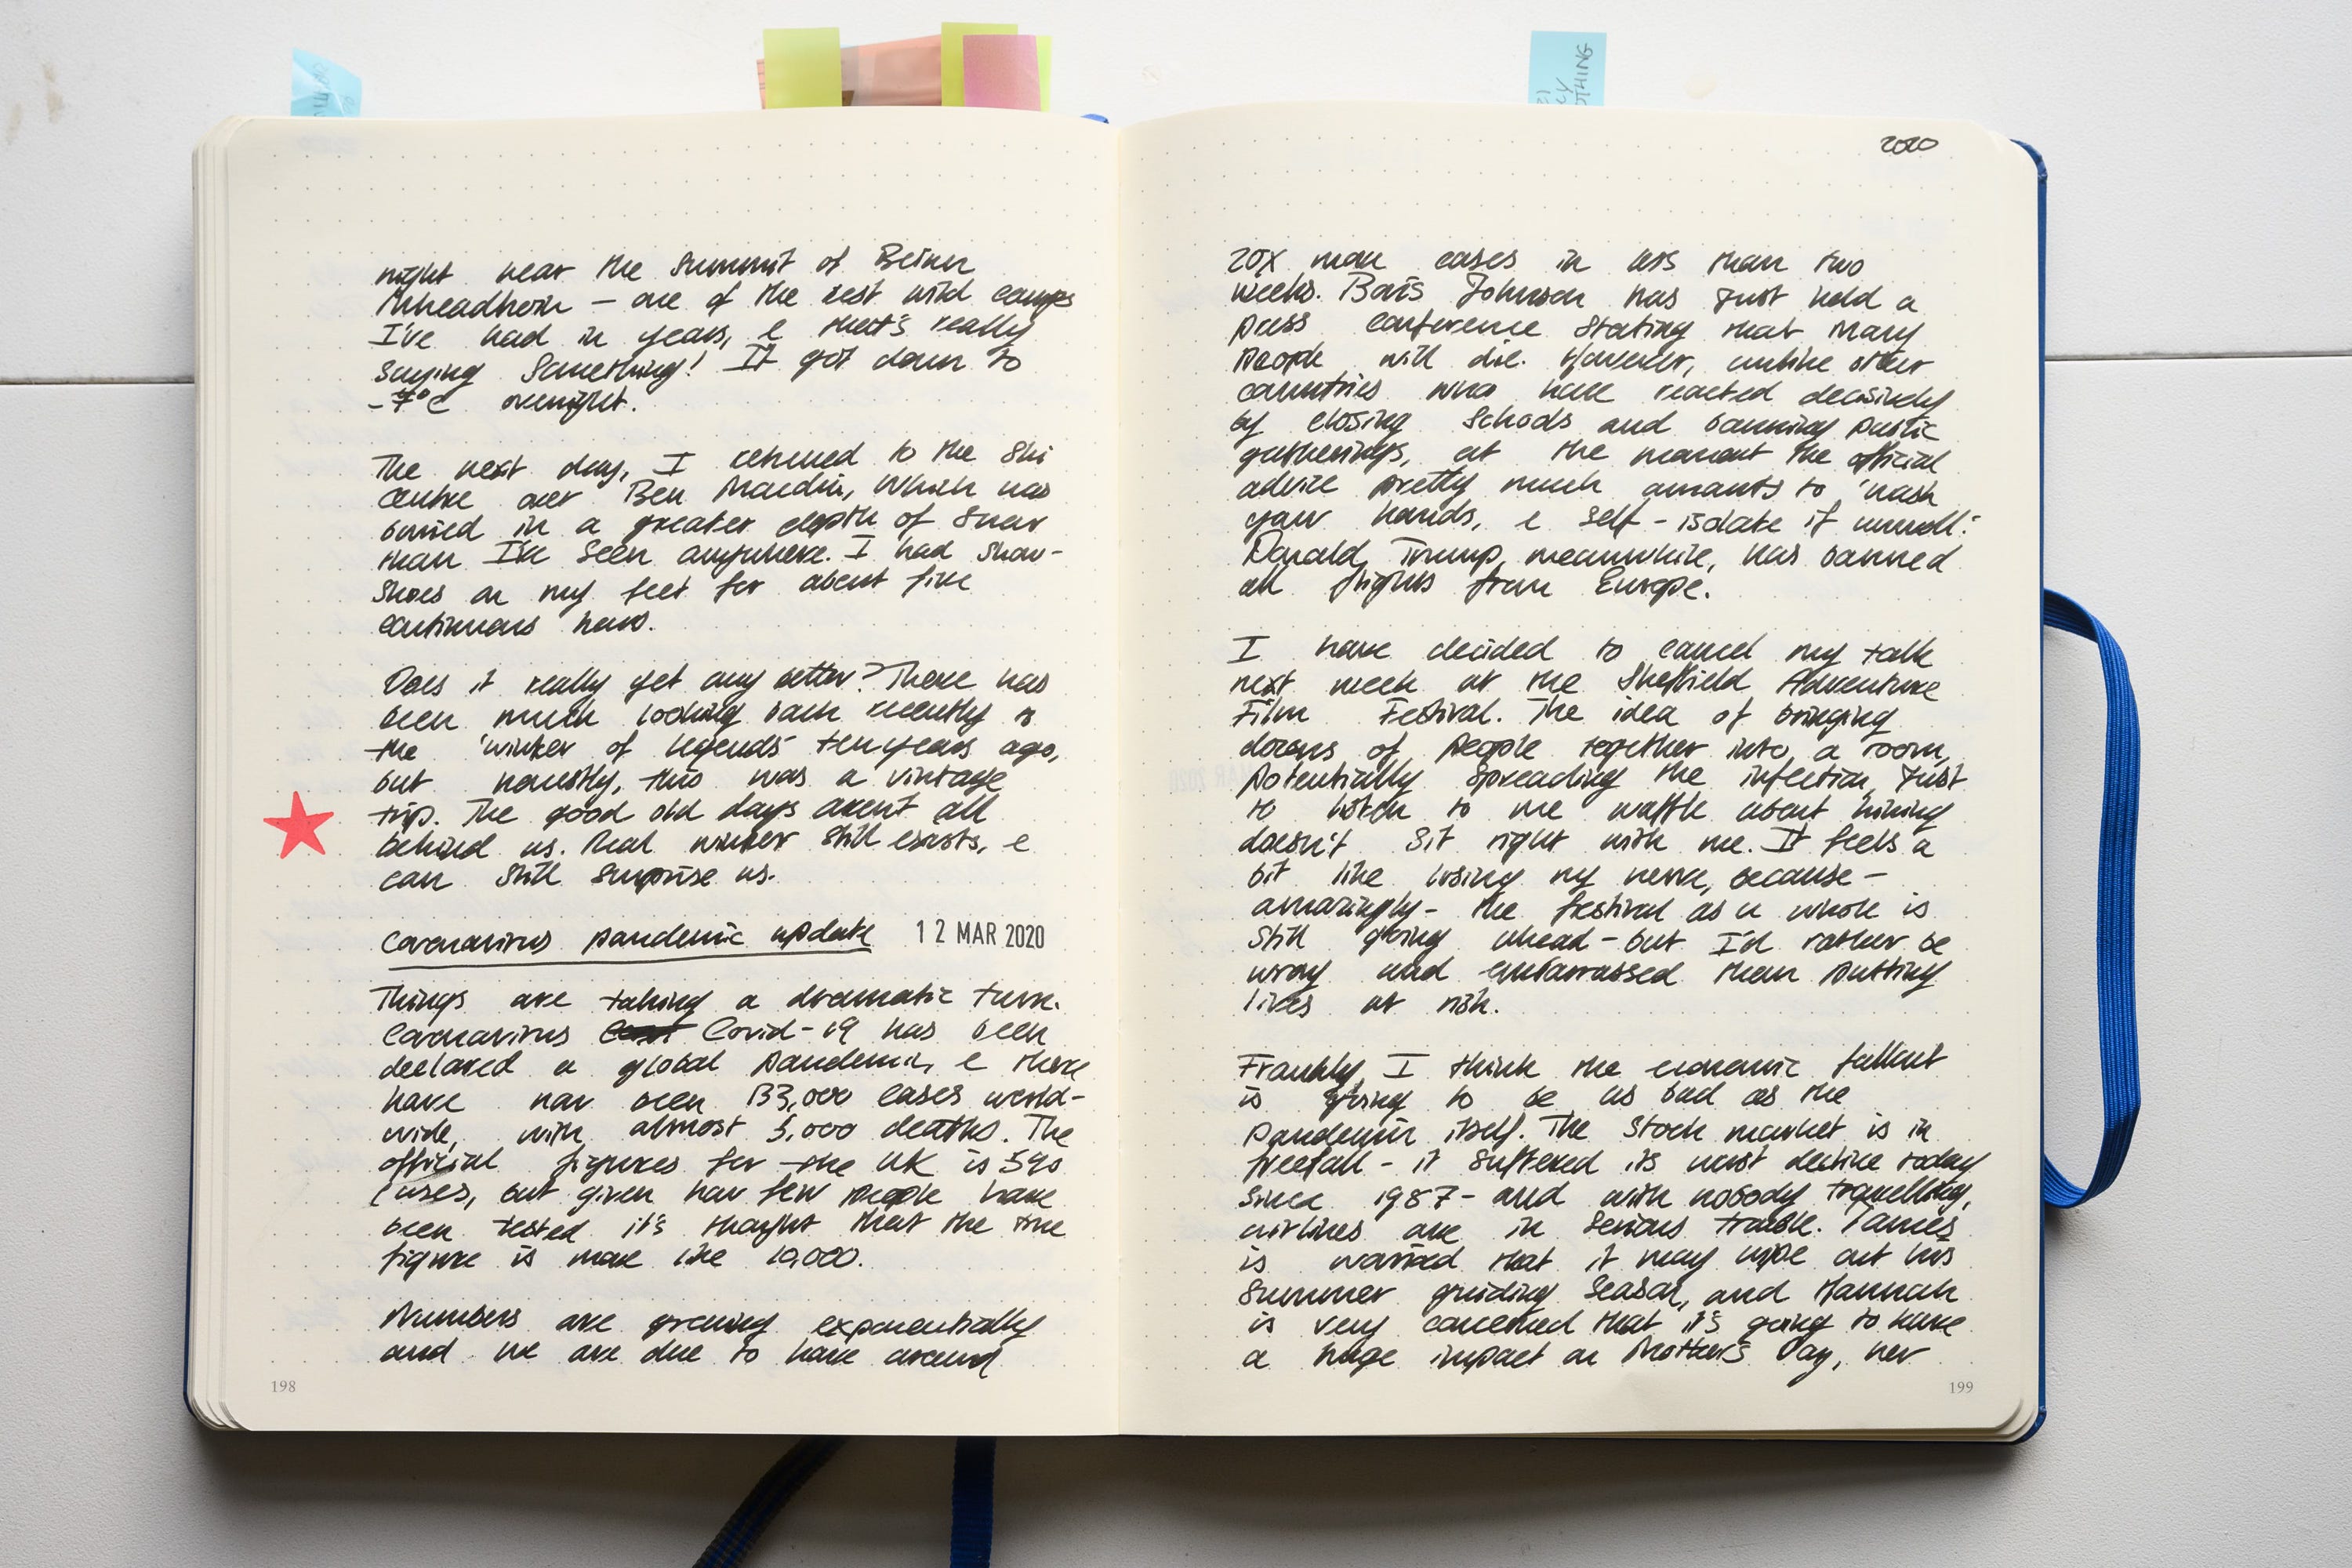 night near the summit of Beinn
Mheadhoin – one of the best wild camps
I've had in years, & that's really
saying something! It got down to
-7°C overnight.
The next day, I returned to the ski
centre over Ben Macdui, which was
buried in a greater depth of snow
than I've seen anywhere. I had snow-
shoes on my feet for about five
continuous hours.
Does it really get any better? There has
been much looking back recently to
the 'winter of legends' ten years ago,
but honestly, this was a vintage
trip. The good old days arent all
behind us. Real winter still exists, &
can still surprise us.
Coronavirus pandemic update 12 MAR 2020
Things are taking a dramatic turn.
Coronavirus Covid-19 has been
declared a global pandemic, & there
have now been 133,000 cases world-
wide, with almost 5,000 deaths. The
official figures for the UK is 590
cases, but given how few people have
been tested it's thought that the true
figure is more like 10,000.
Numbers are growing exponentially
and we are due to have around
198
OTHING
2020
20x more cases in less than two
weeks. Boris Johnson has just held a
press conference stating that many
people will die. However, unlike other
countries who have reacted decisively
by closing schools and banning public
gatherings, at the moment the official
advice pretty much amounts to 'wash
your hands, & self-isolate if unwell.'
Donald Trump, meanwhile, has banned
all flights from Europe.
I have decided to cancel my talk
next week at the Sheffield Adventure
Film Festival. The idea of bringing
dozens of people together into a room,
potentially spreading the infection, just
to listen to me waffle about hiking
doesn't sit right with me. It feels a
bit like losing my nerve, because –
amazingly – the festival as a whole is
still going ahead – but I'd rather be
wrong and embarrassed than putting
lives at risk.
Frankly, I think the economic fallout
is going to be as bad as the
pandemic itself. The stock market is in
freefall – it suffered its worst decline today
since 1987 – and with nobody travelling,
airlines are in serious trouble. James
is worried that it may wipe out his
summer guiding season, and Hannah
is very concerned that it's going to have
a huge impact on Mother's Day, her
199